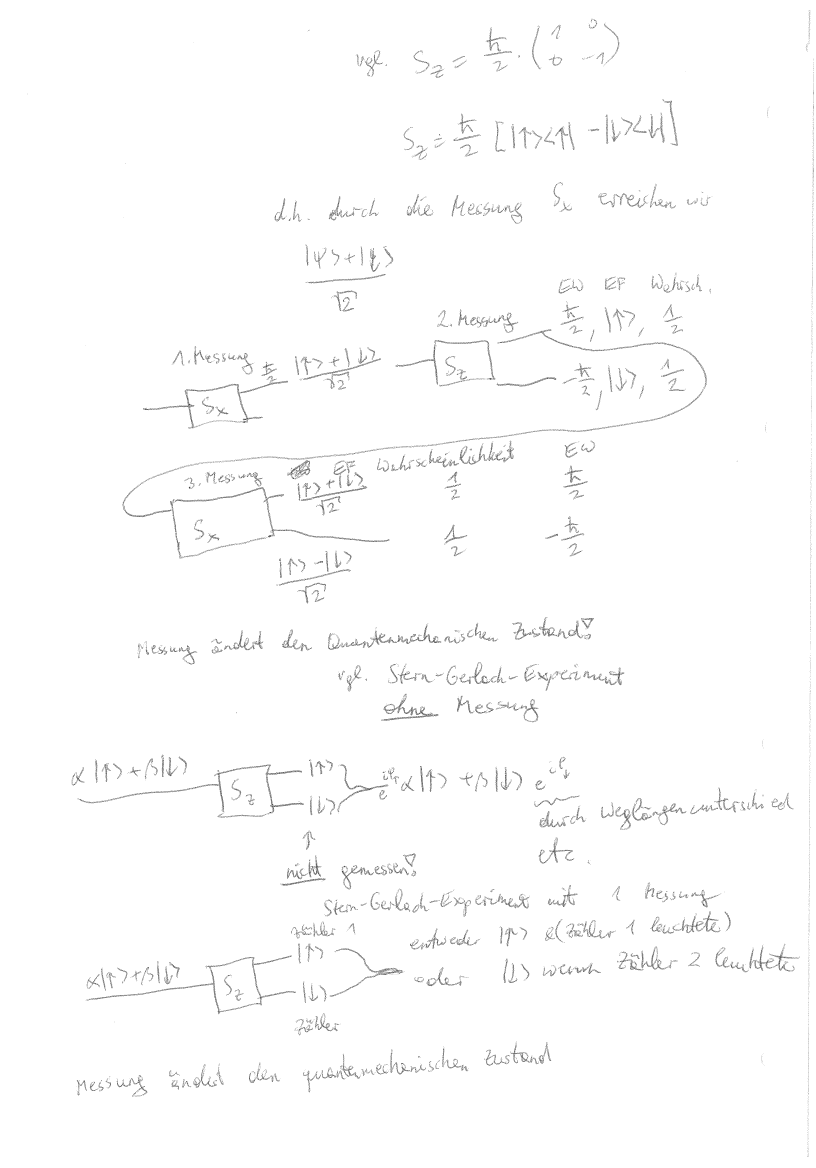 vgl. S_z = ħ/2 · (1 0 / 0 -1)
S_z = ħ/2 [|↑><↑| - |↓><↓|]
d.h. durch die Messung S_x erreichen wir
(|ψ> + |↓>)/√2
EW EF Wahrsch.
2. Messung ħ/2, |↑>, 1/2
1. Messung ħ/2 (|↑> + |↓>)/√2 S_z -ħ/2, |↓>, 1/2
S_x
3. Messung EF Wahrscheinlichkeit EW
(|↑> + |↓>)/√2 1/2 ħ/2
S_x 1/2 -ħ/2
(|↑> - |↓>)/√2
Messung ändert den Quantenmechanischen Zustand!
vgl. Stern-Gerlach-Experiment
ohne Messung
α|↑> + β|↓> S_z |↑> |↓> e^{iφ↑} α|↑> + β|↓> e^{iφ↓}
durch Weglängenunterschied
↑ etc.
nicht gemessen!
Stern-Gerlach-Experiment mit 1 Messung
Zähler 1 entweder |↑> (Zähler 1 leuchtete)
α|↑> + β|↓> S_z |↑> |↓> oder |↓> wenn Zähler 2 leuchtete
Zähler
Messung ändert den quantenmechanischen Zustand